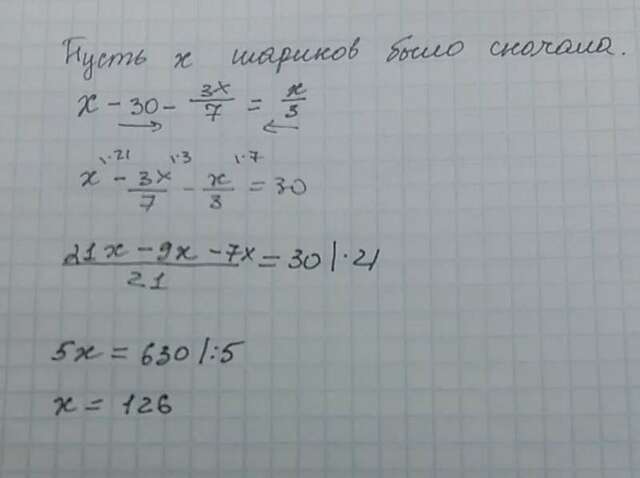 Пусть x шариков было сначала.
x - 30 - 3x/7 = x/3
x |·21 - 3x/7 |·3 - x/3 |·7 = 30
21x - 9x - 7x / 21 = 30 |·21
5x = 630 |:5
x = 126